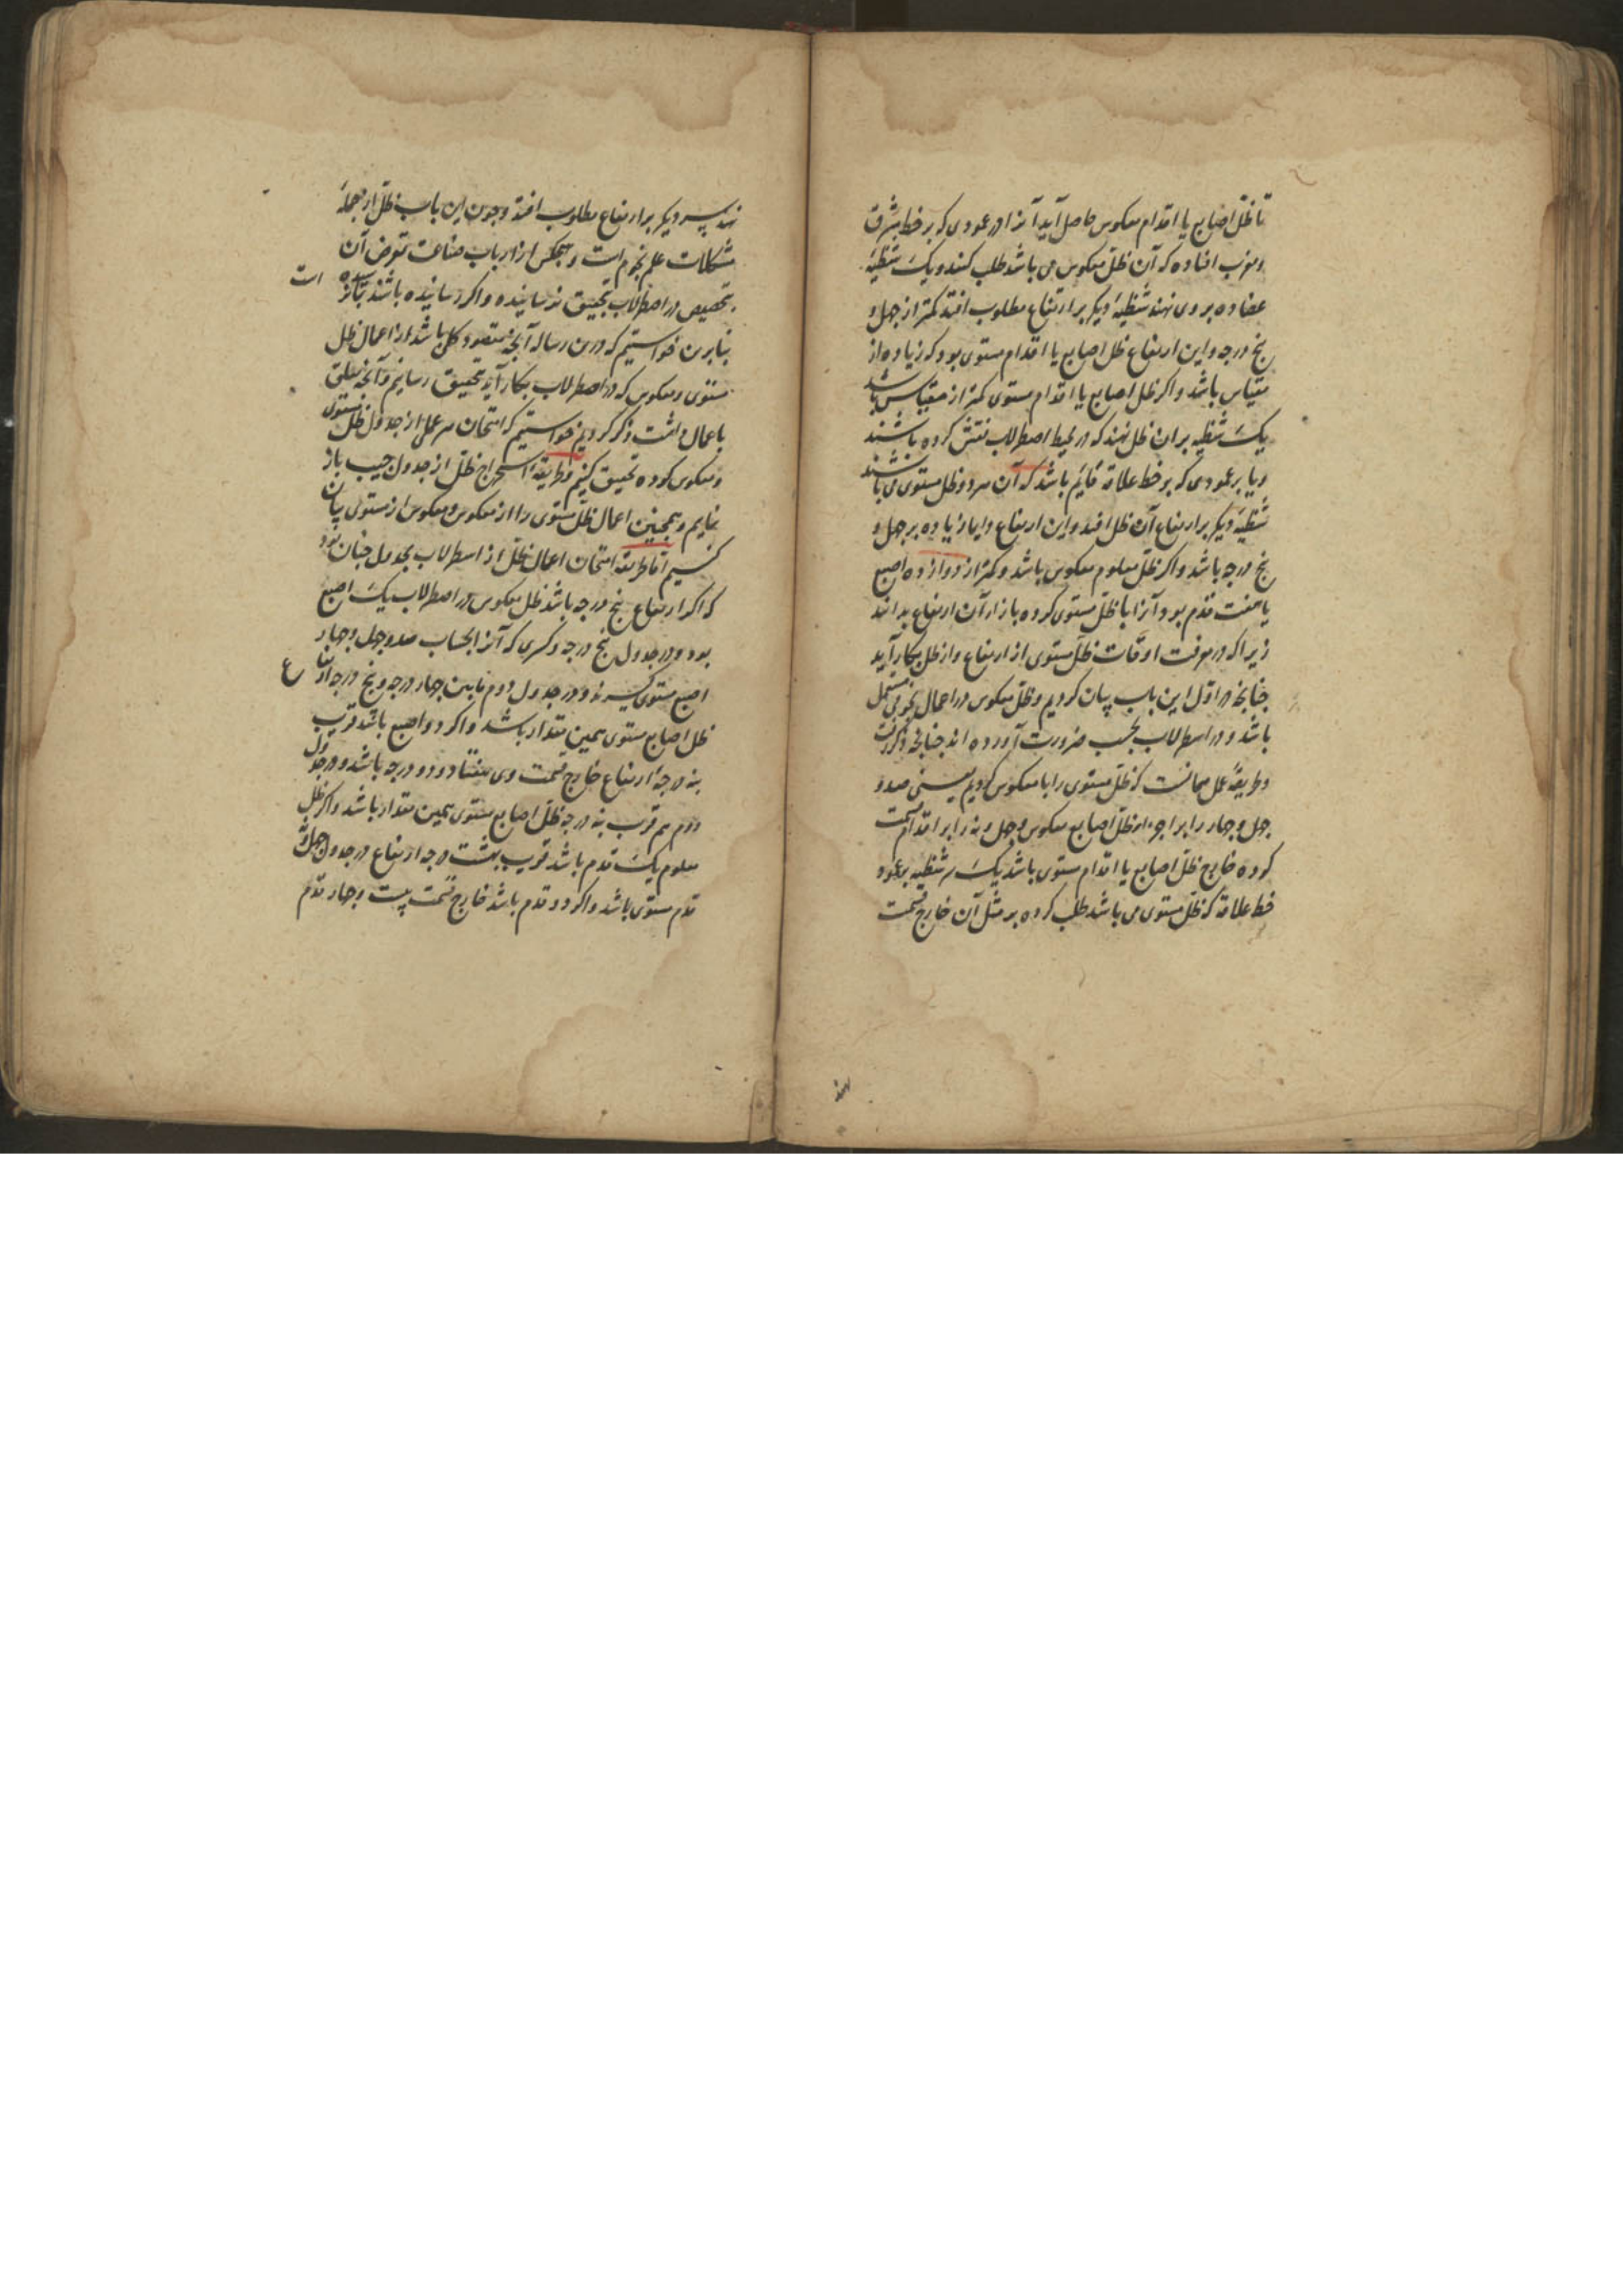 تا ظل اصابع یا اقدام معکوس حاصل آید آنرا در عمودی که بر خط مشرق
و مغرب افتاده که آن ظل معکوس می باشد طلب کنند و یک شظیهٔ
عضاده بر وی نهند شظیهٔ دیکر بر ارتفاع مطلوب افتد کمتر از جهل و
پنج درجه و این ارتفاع ظل اصابع یا اقدام مستوی بود که زیاده از
مقیاس باشد و اکر ظل اصابع یا اقدام مستوی کمتر از مقیاس باشد
یک شظیه بران ظل نهند که در محیط اصطرلاب نقش کرده باشند
و یا بر عمودی که بر خط علاقه قایم باشد که آن هر دو ظل مستوی می باشند
شظیهٔ دیکر بر ارتفاع آن ظل افتد و این ارتفاع دایما زیاده بر جهل و
پنج درجه باشد و اکر ظل معلوم معکوس باشد و کمتر از دوازده اصبع
یا هفت قدم بود آنرا با ظل مستوی کرده بازاء آن ارتفاع بدانند
زیرا که در معرفت اوقات ظل مستوی از ارتفاع و از ظل بکار آید
جنانجه در اول این باب بیان کردیم و ظل معکوس در اعمال نجومی مستعمل
باشد و در اسطرلاب بحسب ضرورت آورده اند جنانجه ذکر رفت
و طریقهٔ عمل همانست که ظل مستوی را با معکوس کردیم یعنی صد و
جهل و جهار را بر اجزاء ظل اصابع معکوس و جهل و نه را بر اقدام قسمت
کرده خارج ظل اصابع یا اقدام مستوی باشد یک سر شظیه بر عمود
خط علاقه که ظل مستوی می باشد طلب کرده بر مثل آن خارج قسمت
نهند
نهند سر دیکر بر ارتفاع مطلوب افتد و جون این باب ظل از جملهٔ
مشکلات علم نجوم است و هیجکس از ارباب صناعت تعرض آن
بتخصیص در اصطرلاب بتحقیق نرسانیده و اکر رسانیده باشد بما نرسیده است
بنابرین خواستیم که درین رساله آنجه مقصود کلی باشد از اعمال ظل
مستوی و معکوس که در اصطرلاب بکار آید بتحقیق رسانیم و آنجه تعلق
باعمال داشت ذکر کردیم خواستیم که امتحان هر عملی از جدول ظل مستوی
و معکوس کرده تحقیق کنیم و طریقهٔ استخراج ظل از جدول جیب باز
نمایم و همجنین اعمال ظل مستوی را از معکوس و معکوس از مستوی بیان
کنیم اما طریقهٔ امتحان اعمال ظل از اسطرلاب بجدول جنان بود
که اکر ارتفاع پنج درجه باشد ظل معکوس در اصطرلاب یک اصبع
بود و در جدول پنج درجه و کسری که آنرا بحساب صد و جهل و جهار
اصبع مستوی کیرند و در جدول دوم مابین جهار درجه و پنج درجه ارتفاع
ظل اصابع مستوی همین مقدار باشد و اکر دو اصبع باشد قریب
بنه درجهٔ ارتفاع خارج قسمت وی هفتاد و دو درجه باشد و در جدول
دوم هم قریب بنه درجه ظل اصابع مستوی همین مقدار باشد و اکر ظل
معلوم یک قدم باشد قریب بهشت درجه ارتفاع در جدول جهل و نه
قدم مستوی باشد و اکر دو قدم باشد خارج قسمت بیست و جهار قدم